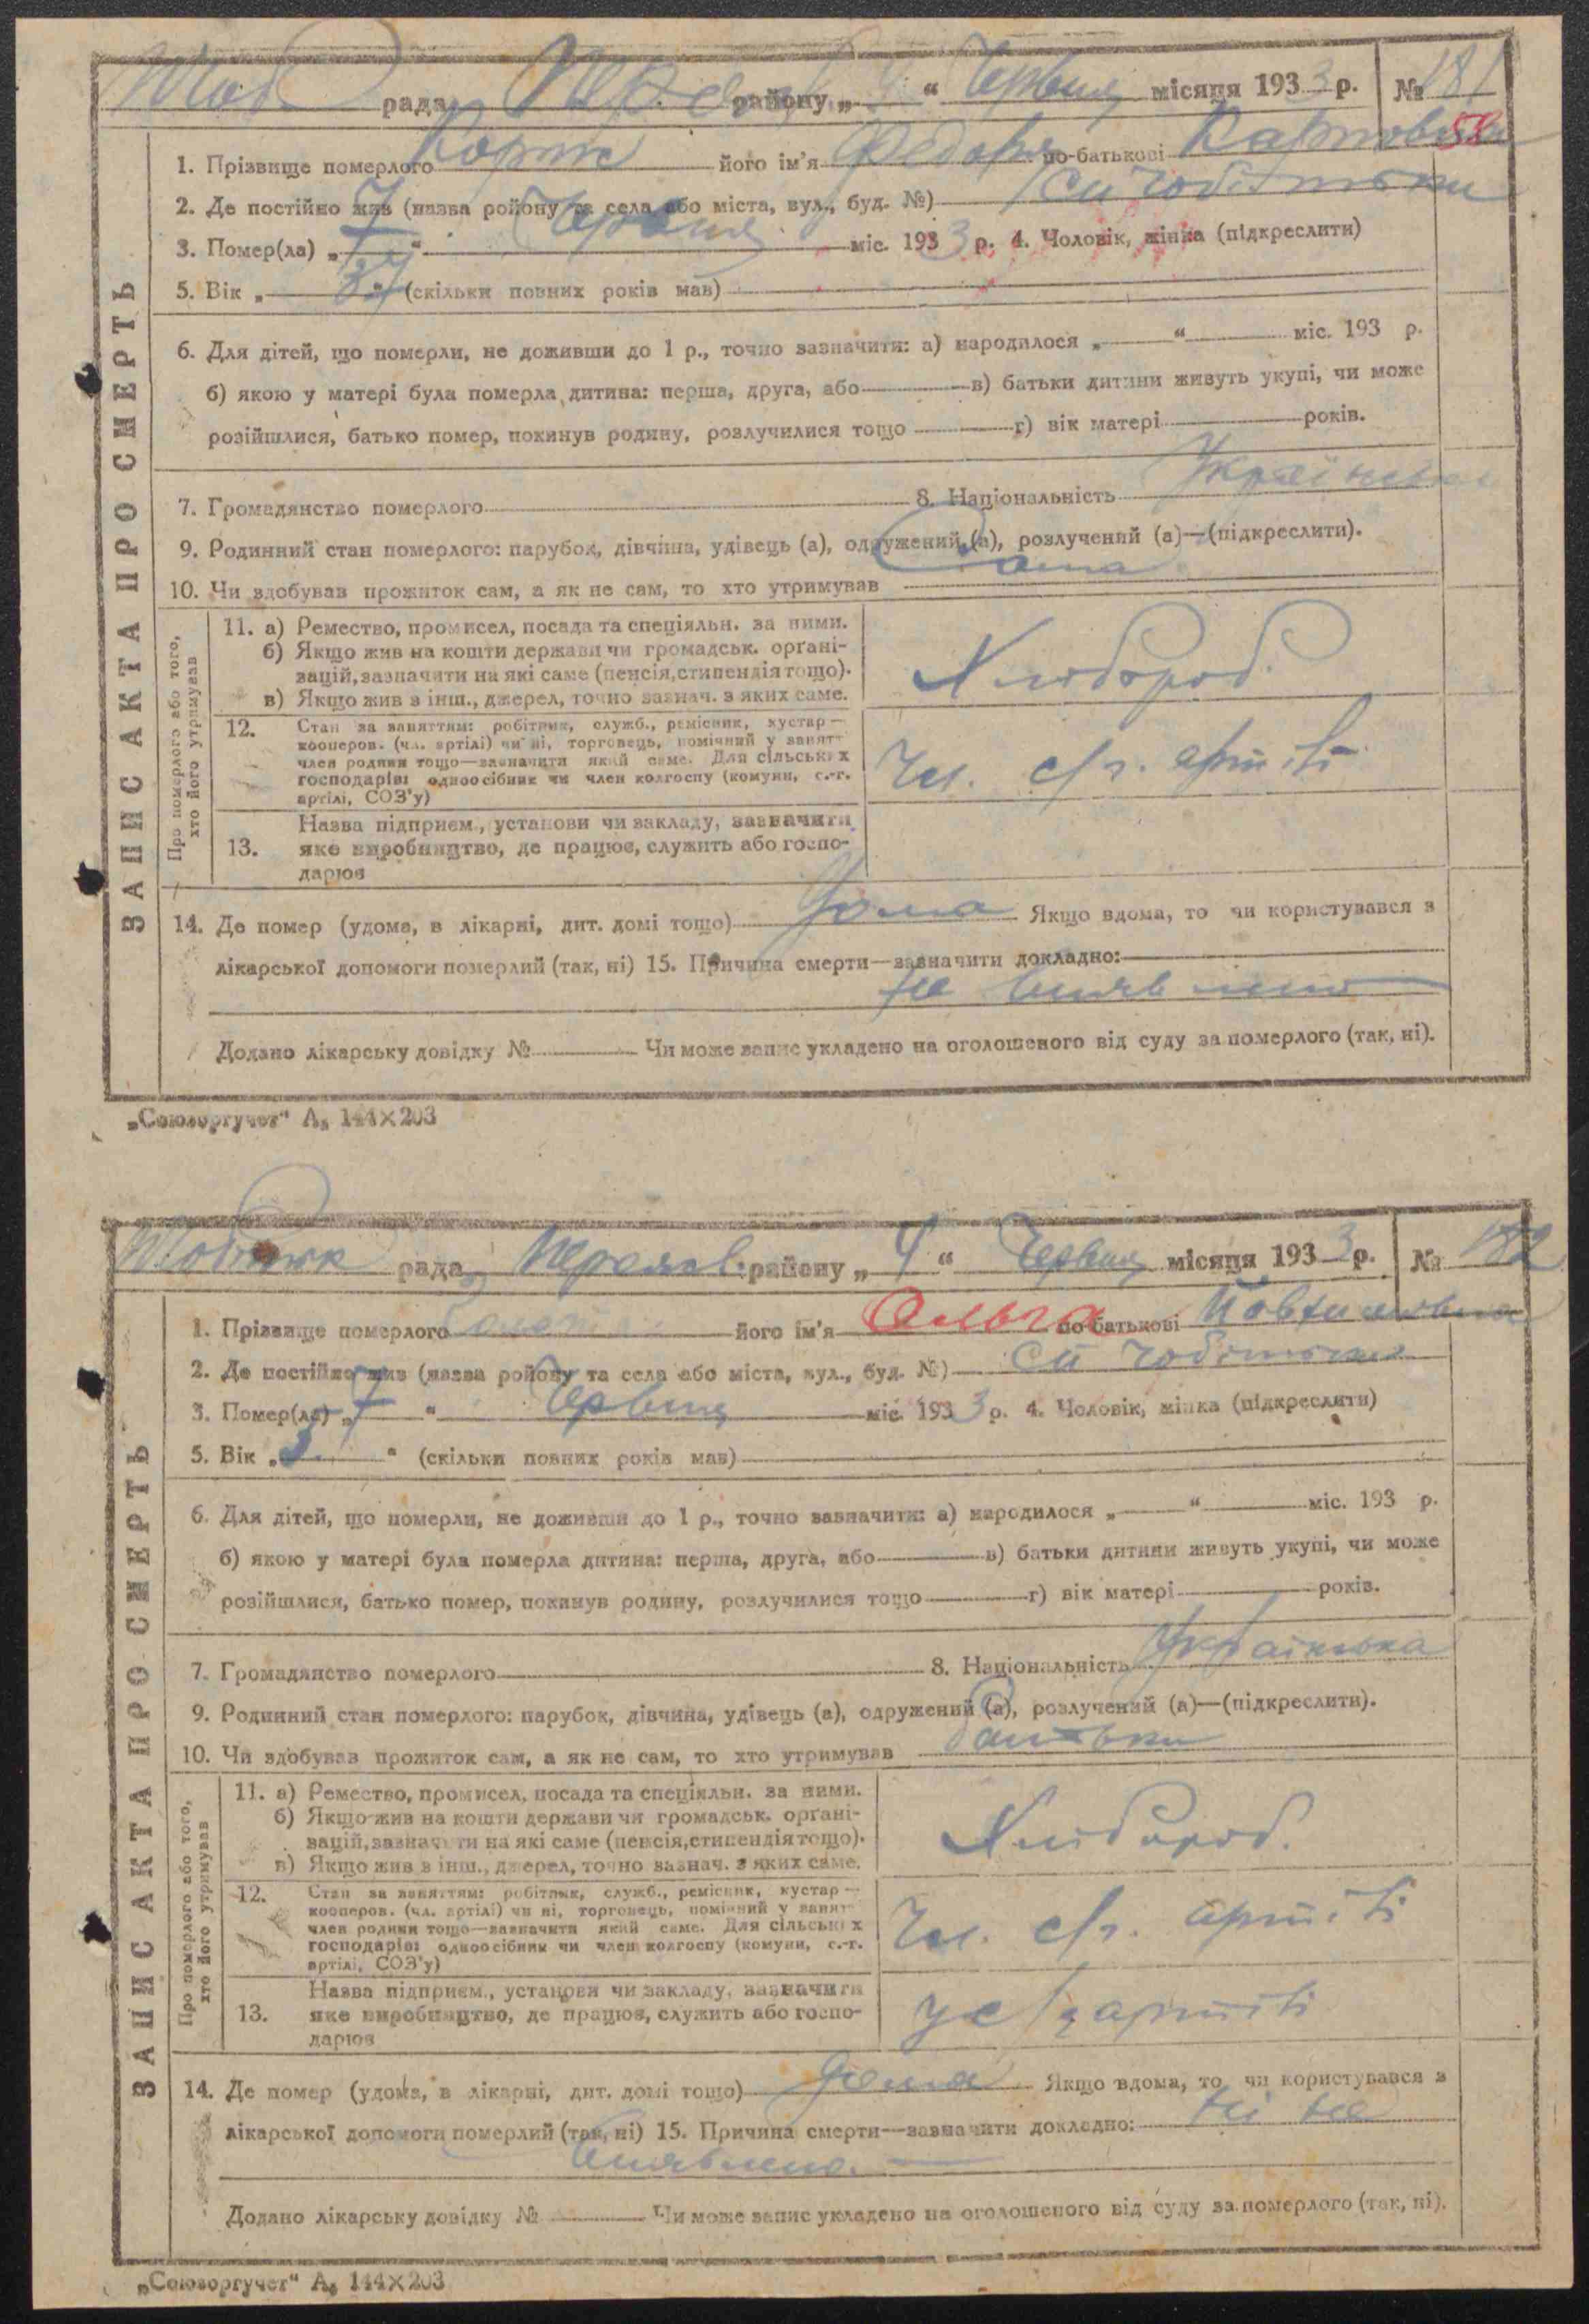 рада району „ “ Червня місяця 1933 р. № 181
58
1. Прізвище померлого Корж його ім'я Федора по-батькові Карповна
2. Де постійно жив (назва ройону та села або міста, вул., буд. №)
3. Помер(ла) „7“ Червня міс. 1933 р. 4. Чоловік, жінка (підкреслити)
5. Вік „37“ (скільки повних років мав)
6. Для дітей, що померли, не доживши до 1 р., точно зазначити: а) народилося „ “ міс. 193 р.
б) якою у матері була померла дитина: перша, друга, або в) батьки дитини живуть укупі, чи може
розійшлися, батько помер, покинув родину, розлучилися тощо г) вік матері років.
7. Громадянство померлого 8. Національність
9. Родинний стан померлого: парубок, дівчина, удівець (а), одружений (а), розлучений (а)—(підкреслити).
10. Чи здобував прожиток сам, а як не сам, то хто утримував Сама
ЗАПИС АКТА ПРО СМЕРТЬ
Про померлого або того,
хто його утримував
11. а) Ремество, промисел, посада та спеціяльн. за ними.
б) Якщо жив на кошти держави чи громадськ. орґані-
зацій, зазначити на які саме (пенсія, стипендія тощо).
в) Якщо жив з інш., джерел, точно зазнач. з яких саме.
Хлібороб.
12. Стан за заняттям: робітник, служб., ремісник, кустар—
кооперов. (чл. артілі) чи ні, торговець, помічний у занятт
член родини тощо—зазначити який саме. Для сільських
господарів: одноосібник чи член колгоспу (комуни, с.-г.
артілі, СОЗ'у)
Чл. с/г. артілі
13. Назва підприєм., установи чи закладу, зазначити
яке виробництво, де працює, служить або госпо-
дарює
14. Де помер (удома, в лікарні, дит. домі тощо) дома Якщо вдома, то чи користувався з
лікарської допомоги померлий (так, ні) 15. Причина смерти—зазначити докладно:
не виявлено
Додано лікарську довідку № Чи може запис укладено на оголошеного від суду за померлого (так, ні).
„Союзоргучет“ А₅ 144×203
рада Переясл. району „4“ Червня місяця 1933 р. № 182
1. Прізвище померлого його ім'я Ольга по-батькові
2. Де постійно жив (назва ройону та села або міста, вул., буд. №)
3. Помер(ла) „7“ Червня міс. 1933 р. 4. Чоловік, жінка (підкреслити)
5. Вік „3“ (скільки повних років мав)
6. Для дітей, що померли, не доживши до 1 р., точно зазначити: а) народилося „ “ міс. 193 р.
б) якою у матері була померла дитина: перша, друга, або в) батьки дитини живуть укупі, чи може
розійшлися, батько помер, покинув родину, розлучилися тощо г) вік матері років.
7. Громадянство померлого 8. Національність Українка
9. Родинний стан померлого: парубок, дівчина, удівець (а), одружений (а), розлучений (а)—(підкреслити).
10. Чи здобував прожиток сам, а як не сам, то хто утримував батьки
ЗАПИС АКТА ПРО СМЕРТЬ
Про померлого або того,
хто його утримував
11. а) Ремество, промисел, посада та спеціяльн. за ними.
б) Якщо жив на кошти держави чи громадськ. орґані-
зацій, зазначити на які саме (пенсія, стипендія тощо).
в) Якщо жив з інш., джерел, точно зазнач. з яких саме.
Хлібороб.
12. Стан за заняттям: робітник, служб., ремісник, кустар—
кооперов. (чл. артілі) чи ні, торговець, помічний у занят
член родини тощо—зазначити який саме. Для сільських
господарів: одноосібник чи член колгоспу (комуни, с.-г.
артілі, СОЗ'у)
Чл. с/г. артілі
13. Назва підприєм., установи чи закладу, зазначити
яке виробництво, де працює, служить або госпо-
дарює
у с/г артілі
14. Де помер (удома, в лікарні, дит. домі тощо) дома Якщо вдома, то чи користувався з
лікарської допомоги померлий (так, ні) 15. Причина смерти—зазначити докладно: ні не
виявлено.
Додано лікарську довідку № Чи може запис укладено на оголошеного від суду за померлого (так, ні).
„Союзоргучет“ А₅ 144×203